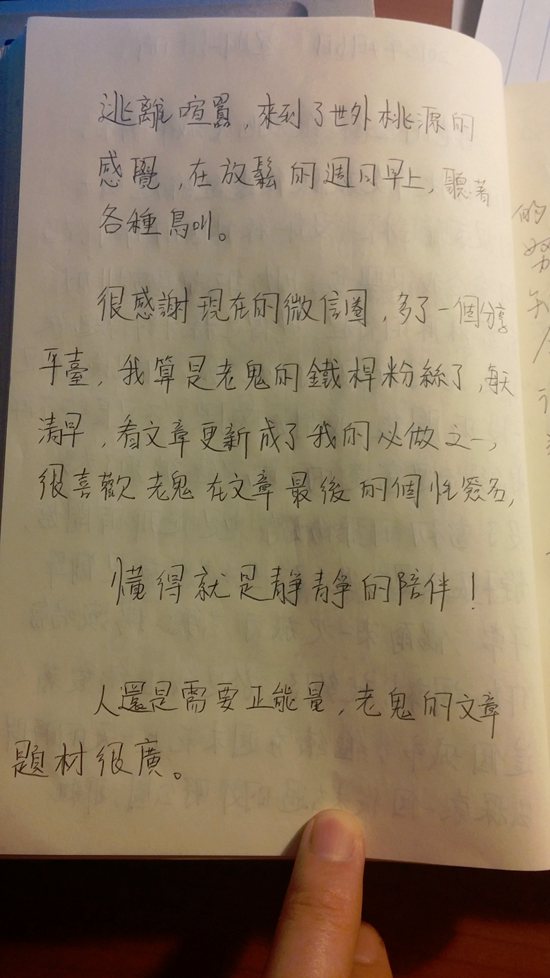 逃離喧囂，來到了世外桃源的
感覺，在放鬆的週日早上，聽著
各種鳥叫。
很感謝現在的微信圈，多了一個分享
平臺，我算是老鬼的鐵桿粉絲了，每天
清早，看文章更新成了我的必做之一，
很喜歡老鬼在文章最後的個性簽名，
懂得就是靜靜的陪伴！
人還是需要正能量，老鬼的文章
題材很廣。
的